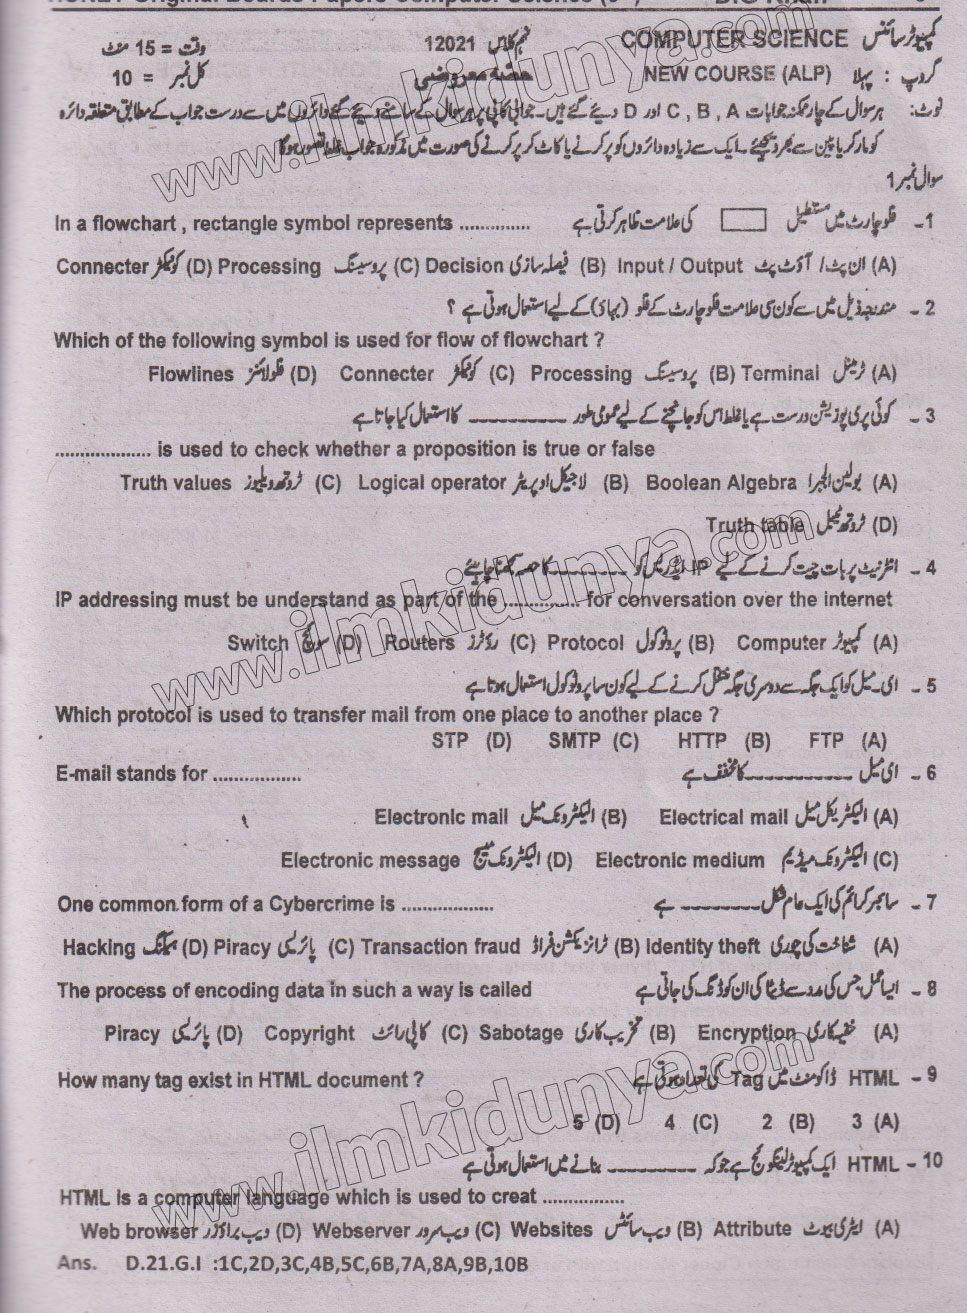 COMPUTER SCIENCE کمپیوٹر سائنس
12021
وقت = 15 منٹ
گروپ : پہلا NEW COURSE (ALP)
حصہ معروضی
کل نمبر = 10
نوٹ: ہر سوال کے چار ممکنہ جوابات A , B , C اور D دیئے گئے ہیں۔ جوابی کاپی پر ہر سوال کے سامنے دیئے گئے دائروں میں سے درست جواب کے مطابق متعلقہ دائرہ
کو مارکر یا پین سے بھر دیجئے۔ ایک سے زیادہ دائروں کو پر کرنے یا کاٹ کر پر کرنے کی صورت میں مذکورہ جواب غلط تصور ہوگا
سوال نمبر 1
1۔ فلو چارٹ میں مستطیل کی علامت ظاہر کرتی ہے In a flowchart , rectangle symbol represents ..............
(A) ان پٹ / آؤٹ پٹ Input / Output (B) فیصلہ سازی Decision (C) پروسیسنگ Processing (D) کونیکٹر Connecter
2 ۔ مندرجہ ذیل میں سے کون سی علامت فلو چارٹ کے فلو (بہاؤ) کے لیے استعمال ہوتی ہے ؟
Which of the following symbol is used for flow of flowchart ?
(A) ٹرمینل Terminal (B) پروسیسنگ Processing (C) کونیکٹر Connecter (D) فلو لائنز Flowlines
3 ۔ کوئی پری پوزیشن درست ہے یا غلط اس کو جانچنے کے لیے عمومی طور ---------- کا استعمال کیا جاتا ہے
................... is used to check whether a proposition is true or false
(A) بولین الجبرا Boolean Algebra (B) لاجیکل اوپریٹر Logical operator (C) ٹروتھ ویلیوز Truth values
(D) ٹروتھ ٹیبل Truth table
4 ۔ انٹرنیٹ پر بات چیت کرنے کے لیے IP ایڈریس کو -------- کا حصہ سمجھنا چاہئے
IP addressing must be understand as part of the ............... for conversation over the internet
(A) کمپیوٹر Computer (B) پروٹوکول Protocol (C) روٹرز Routers (D) سوئچ Switch
5 ۔ ای۔میل کو ایک جگہ سے دوسری جگہ منتقل کرنے کے لیے کون سا پروٹوکول استعمال ہوتا ہے
Which protocol is used to transfer mail from one place to another place ?
(A) FTP (B) HTTP (C) SMTP (D) STP
6 ۔ ای میل ----------- کا مخفف ہے E-mail stands for .................
(A) الیکٹریکل میل Electrical mail (B) الیکٹرونک میل Electronic mail
(C) الیکٹرونک میڈیم Electronic medium (D) الیکٹرونک میسج Electronic message
7 ۔ سائبر کرائم کی ایک عام شکل -------- ہے One common form of a Cybercrime is ..................
(A) شناخت کی چوری Identity theft (B) ٹرانزیکشن فراڈ Transaction fraud (C) پائریسی Piracy (D) ہیکنگ Hacking
8 ۔ ایسا عمل جس کی مدد سے ڈیٹا کی ان کوڈنگ کی جاتی ہے The process of encoding data in such a way is called
(A) خفیہ کاری Encryption (B) تخریب کاری Sabotage (C) کاپی رائٹ Copyright (D) پائریسی Piracy
9 ۔ HTML ڈاکومنٹ میں Tag کی تعداد ہوتی ہے How many tag exist in HTML document ?
(A) 3 (B) 2 (C) 4 (D) 5
10 ۔ HTML ایک کمپیوٹر لینگوئج ہے جو کہ --------- بنانے میں استعمال ہوتی ہے
HTML is a computer language which is used to creat ................
(A) ایٹری بیوٹ Attribute (B) ویب سائٹس Websites (C) ویب سرور Webserver (D) ویب براؤزر Web browser
Ans. D.21.G.I :1C,2D,3C,4B,5C,6B,7A,8A,9B,10B
www.ilmkidunya.com
www.ilmkidunya.com
www.ilmkidunya.com